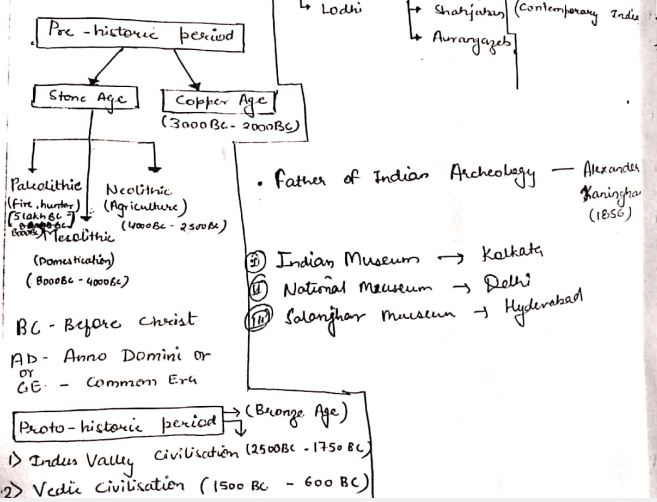 Lodhi
Shahjahan (Contemporary India
Aurangazeb
Pre-historic period
Stone Age
Copper Age
(3000BC - 2000BC)
Paleolithic
(fire, hunter)
[5 lakh BC -
8000BC]
Neolithic
(Agriculture)
(4000BC - 2500BC)
Mesolithic
(Domestication)
(8000BC - 4000BC)
• Father of Indian Archeology — Alexander
Kaningha
(1856)
I) Indian Museum → Kolkata
II National Mueseum → Delhi
III Salanjhar museum → Hyderabad
BC - Before Christ
AD - Anno Domini or
or
CE - Common Era
Proto-historic period → (Bronze Age)
1) Indus Valley Civilisation (2500BC - 1750 BC)
2) Vedic Civilisation (1500 BC - 600 BC)